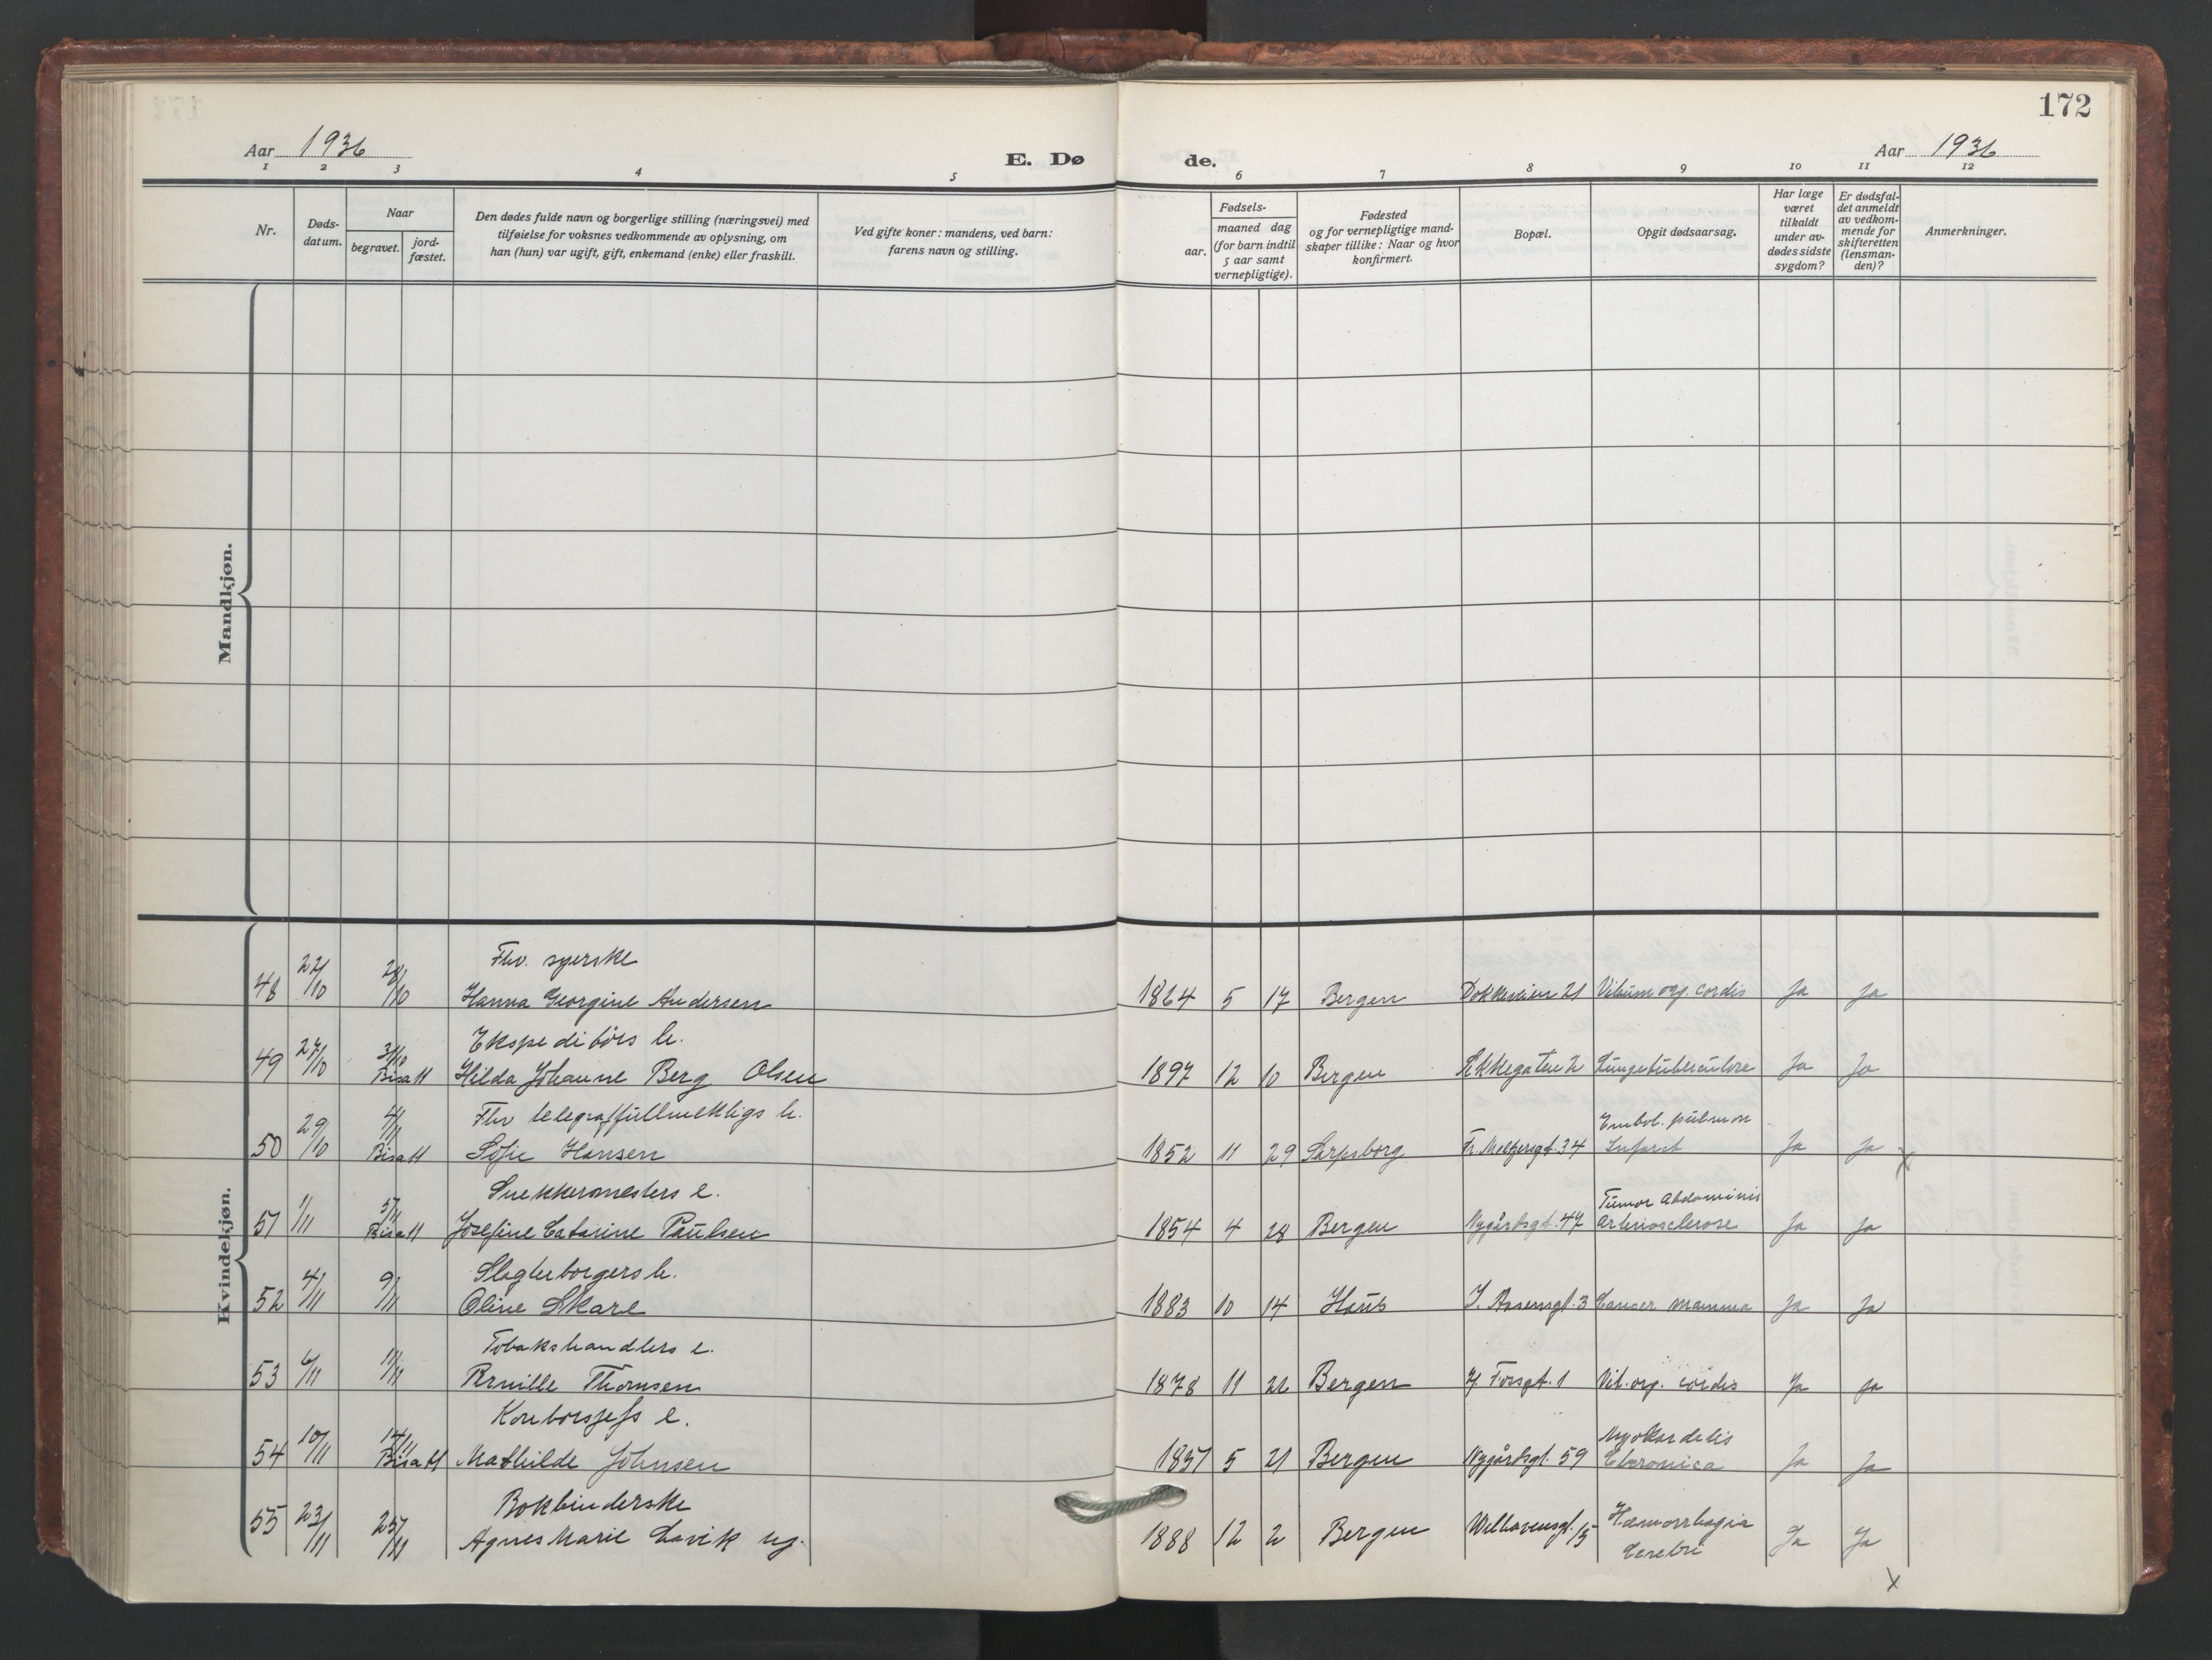 172
Aar 1936
E. Dø de.
Aar 1936
1 2 3 4 5 6 7 8 9 10 11 12
Nr.
Døds-
datum.
Naar
begravet.
jord-
fæstet.
Den dødes fulde navn og borgerlige stilling (næringsvei) med
tilføielse for voksnes vedkommende av oplysning, om
han (hun) var ugift, gift, enkemand (enke) eller fraskilt.
Ved gifte koner: mandens, ved barn:
farens navn og stilling.
Fødsels-
aar.
maaned dag
(for barn indtil
5 aar samt
vernepligtige).
Fødested
og for vernepligtige mand-
skaper tillike: Naar og hvor
konfirmert.
Bopæl.
Opgit dødsaarsag.
Har læge
været
tilkaldt
under av-
dødes sidste
sygdom?
Er dødsfal-
det anmeldt
av vedkom-
mende for
skifteretten
(lensman-
den)?
Anmerkninger.
Mandkjøn.
Kvindekjøn.
Fhv. syerske
48 22/10 28/10 Hanna Georgine Andersen 1864 5 17 Bergen Dokkeveien 21 Vitium org. cordis Ja Ja
Ekspeditörs h.
49 27/10 31/10 Hilda Johanne Berg Olsen 1897 12 10 Bergen Lungetuberculose Ja Ja
Fhv telegraffullmektigs h.
Embol. pulmon
50 29/10 4/11 Sofie Hansen 1852 11 29 Sarpsborg Fr. Meltzersgt. 34 Infarct Ja Ja x
Snekkermesters e.
Tumor Abdominis
51 1/11 5/11 Josefine Catarine Paulsen 1854 4 28 Bergen Nygårdsgt. 47 Arteriosclerose Ja Ja
Slagterborgers h.
52 4/11 9/11 Oline Skare 1883 10 14 Haus I. Aasensgt. 3 Cancer mamma Ja Ja
Tobakshandlers e.
53 6/11 11/11 Pernille Thomsen 1878 11 Bergen Fossgt. 1 Vit. org. cordis Ja Ja
Kontorsjefs e.
Myokarditis
54 10/11 14/11 Mathilde Johnsen 5 21 Bergen Nygårdsgt. 59 Chronica Ja Ja
Bokbinderske
Hæmorrhagia
55 23/11 Agnes Marie Lavik ug. 1888 12 2 Bergen Welhavensgt. 15 Cerebri Ja Ja
x